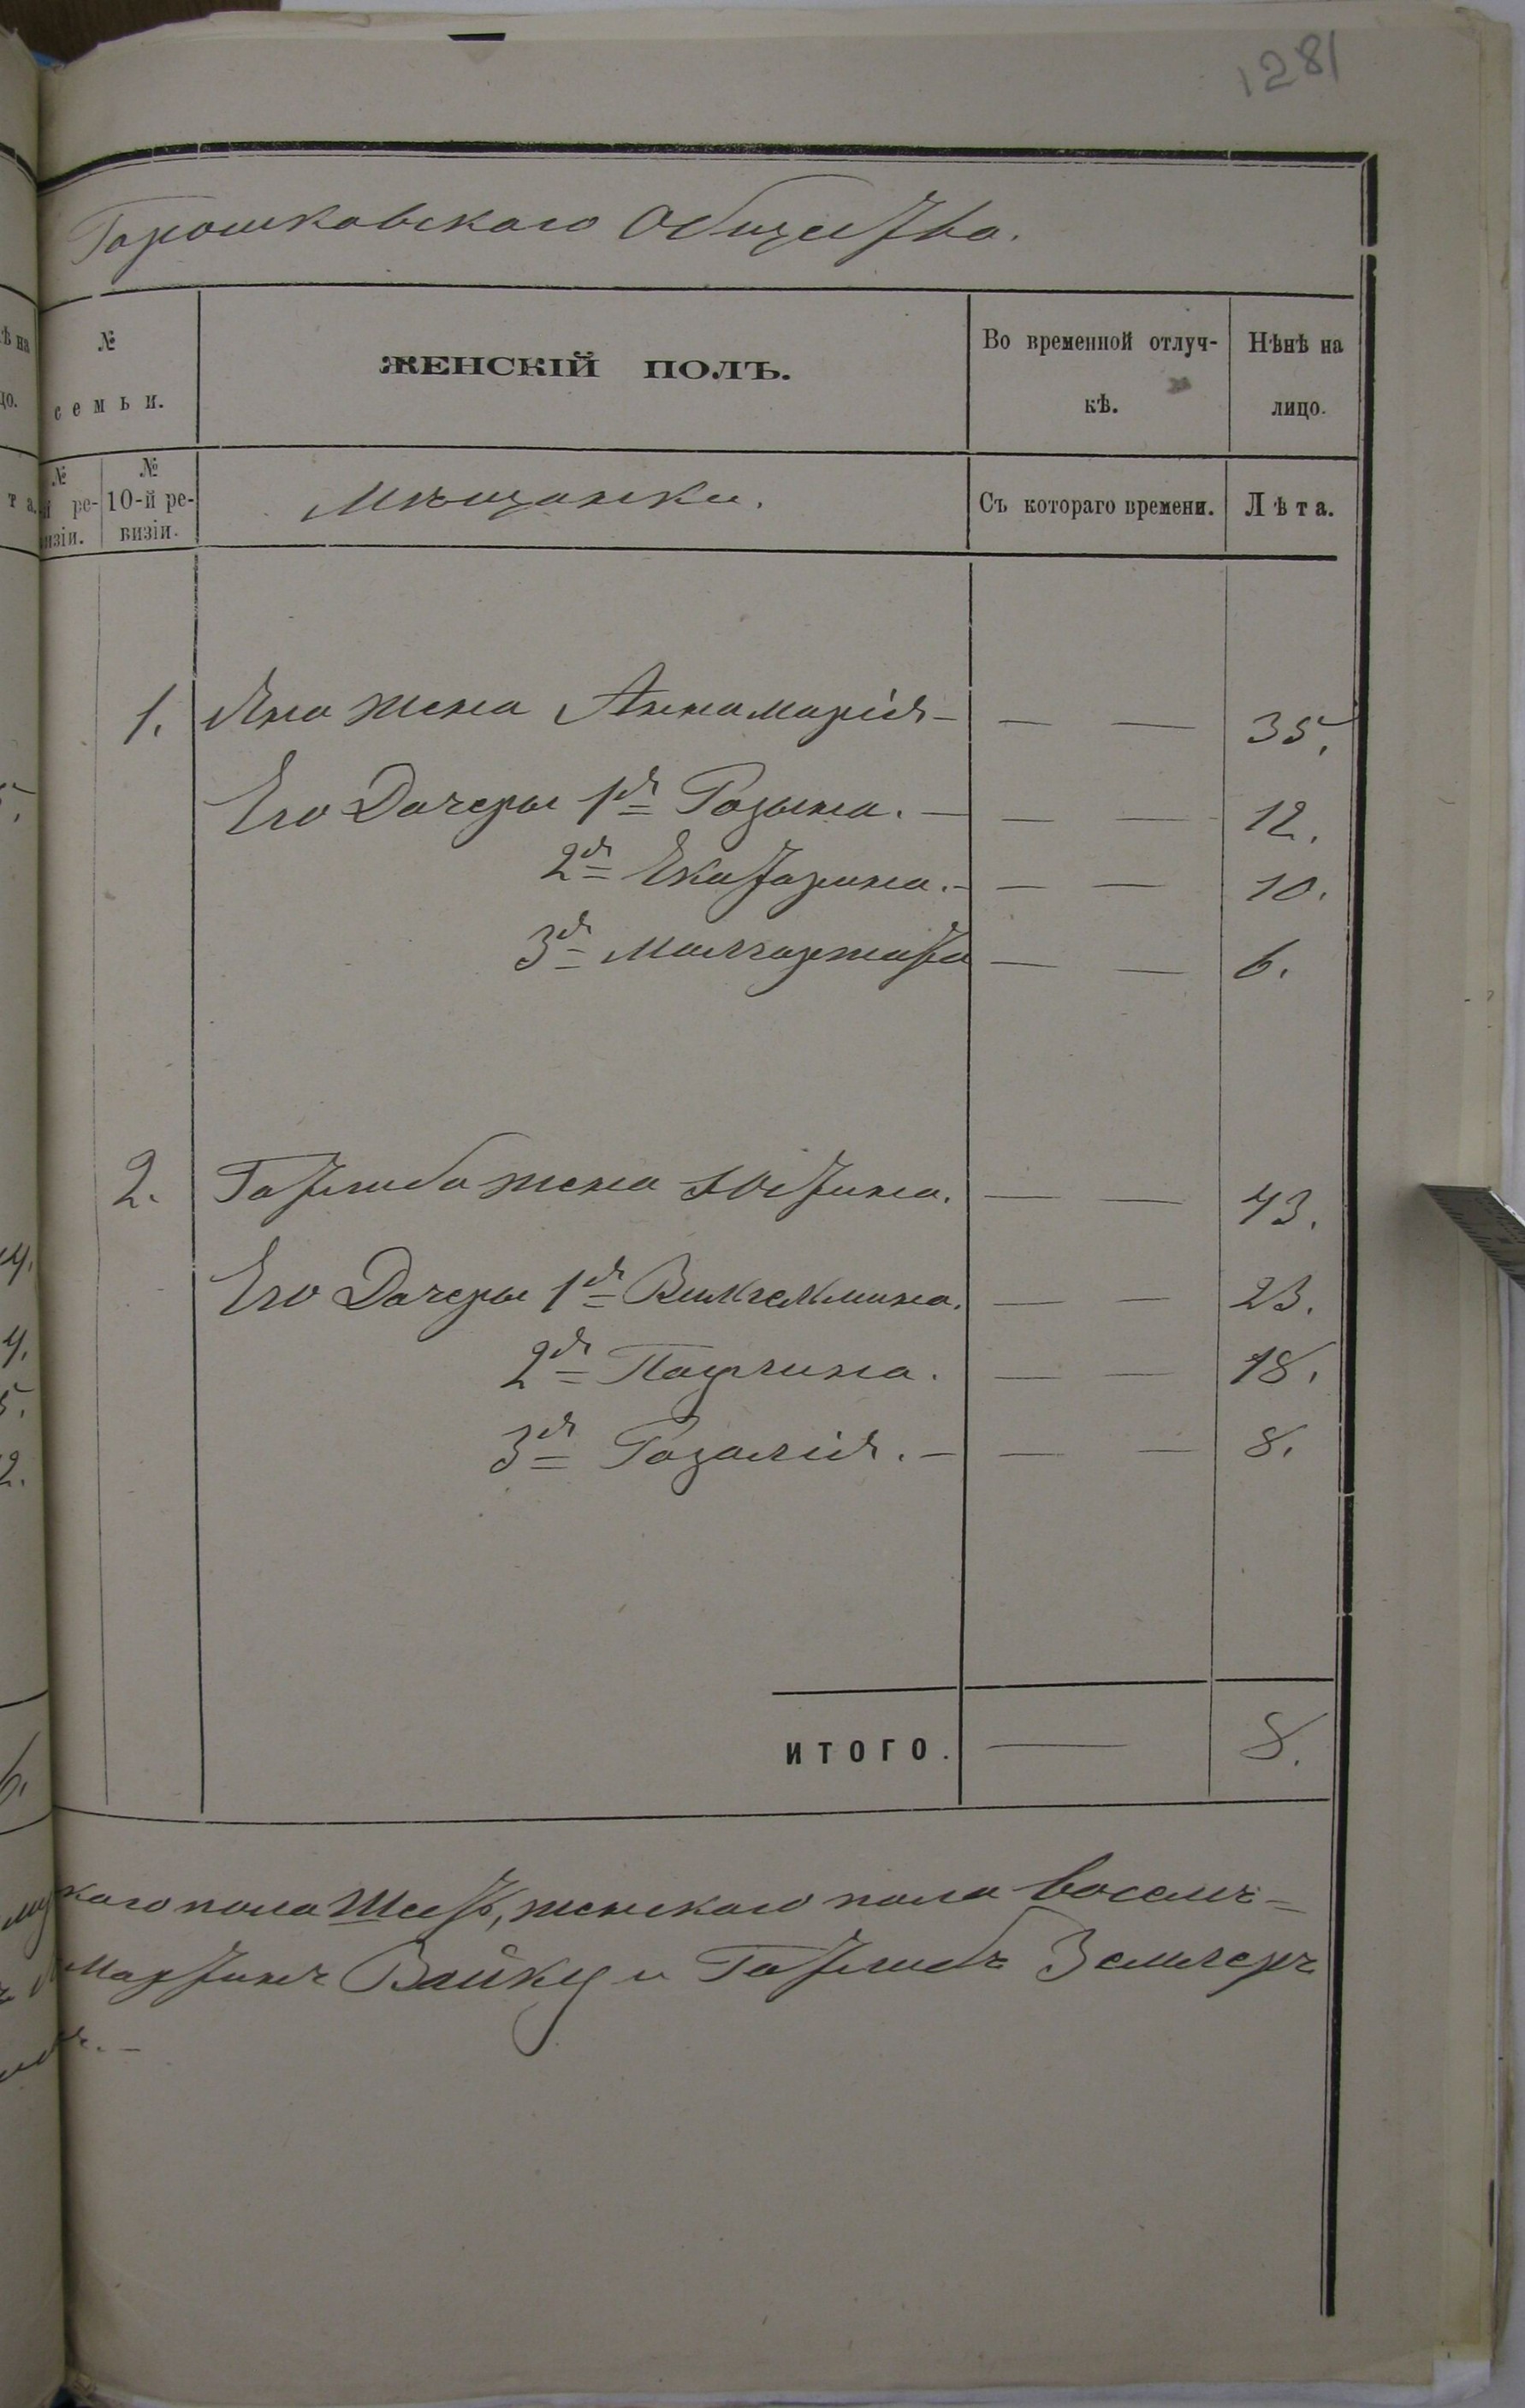 1281
Горошковскаго Общества.
№
семьи.
ЖЕНСКІЙ ПОЛЪ.
Во временной отлуч-
кѣ.
Нѣнѣ на
лицо.
№
ре-
визіи.
№
10-й ре-
визіи.
Мѣщанки.
Съ котораго времени.
Лѣта.
1. Яна жена Аннамарія - — — 35.
Его Дочеры 1я Розына. - — — 12.
2я Екатарина. - — — 10.
3я Малгаржата — — 6.
2. Готлиба жена Юстина. — — 43.
Его Дочеры 1я Вильгельмина. — — 23.
2я Паулина. — — 18.
3я Розалія. - — — 8.
ИТОГО. — 8.
каго пола Шесть, женскаго пола восемь =
Мартинъ Вайку и Готлибъ Землеръ